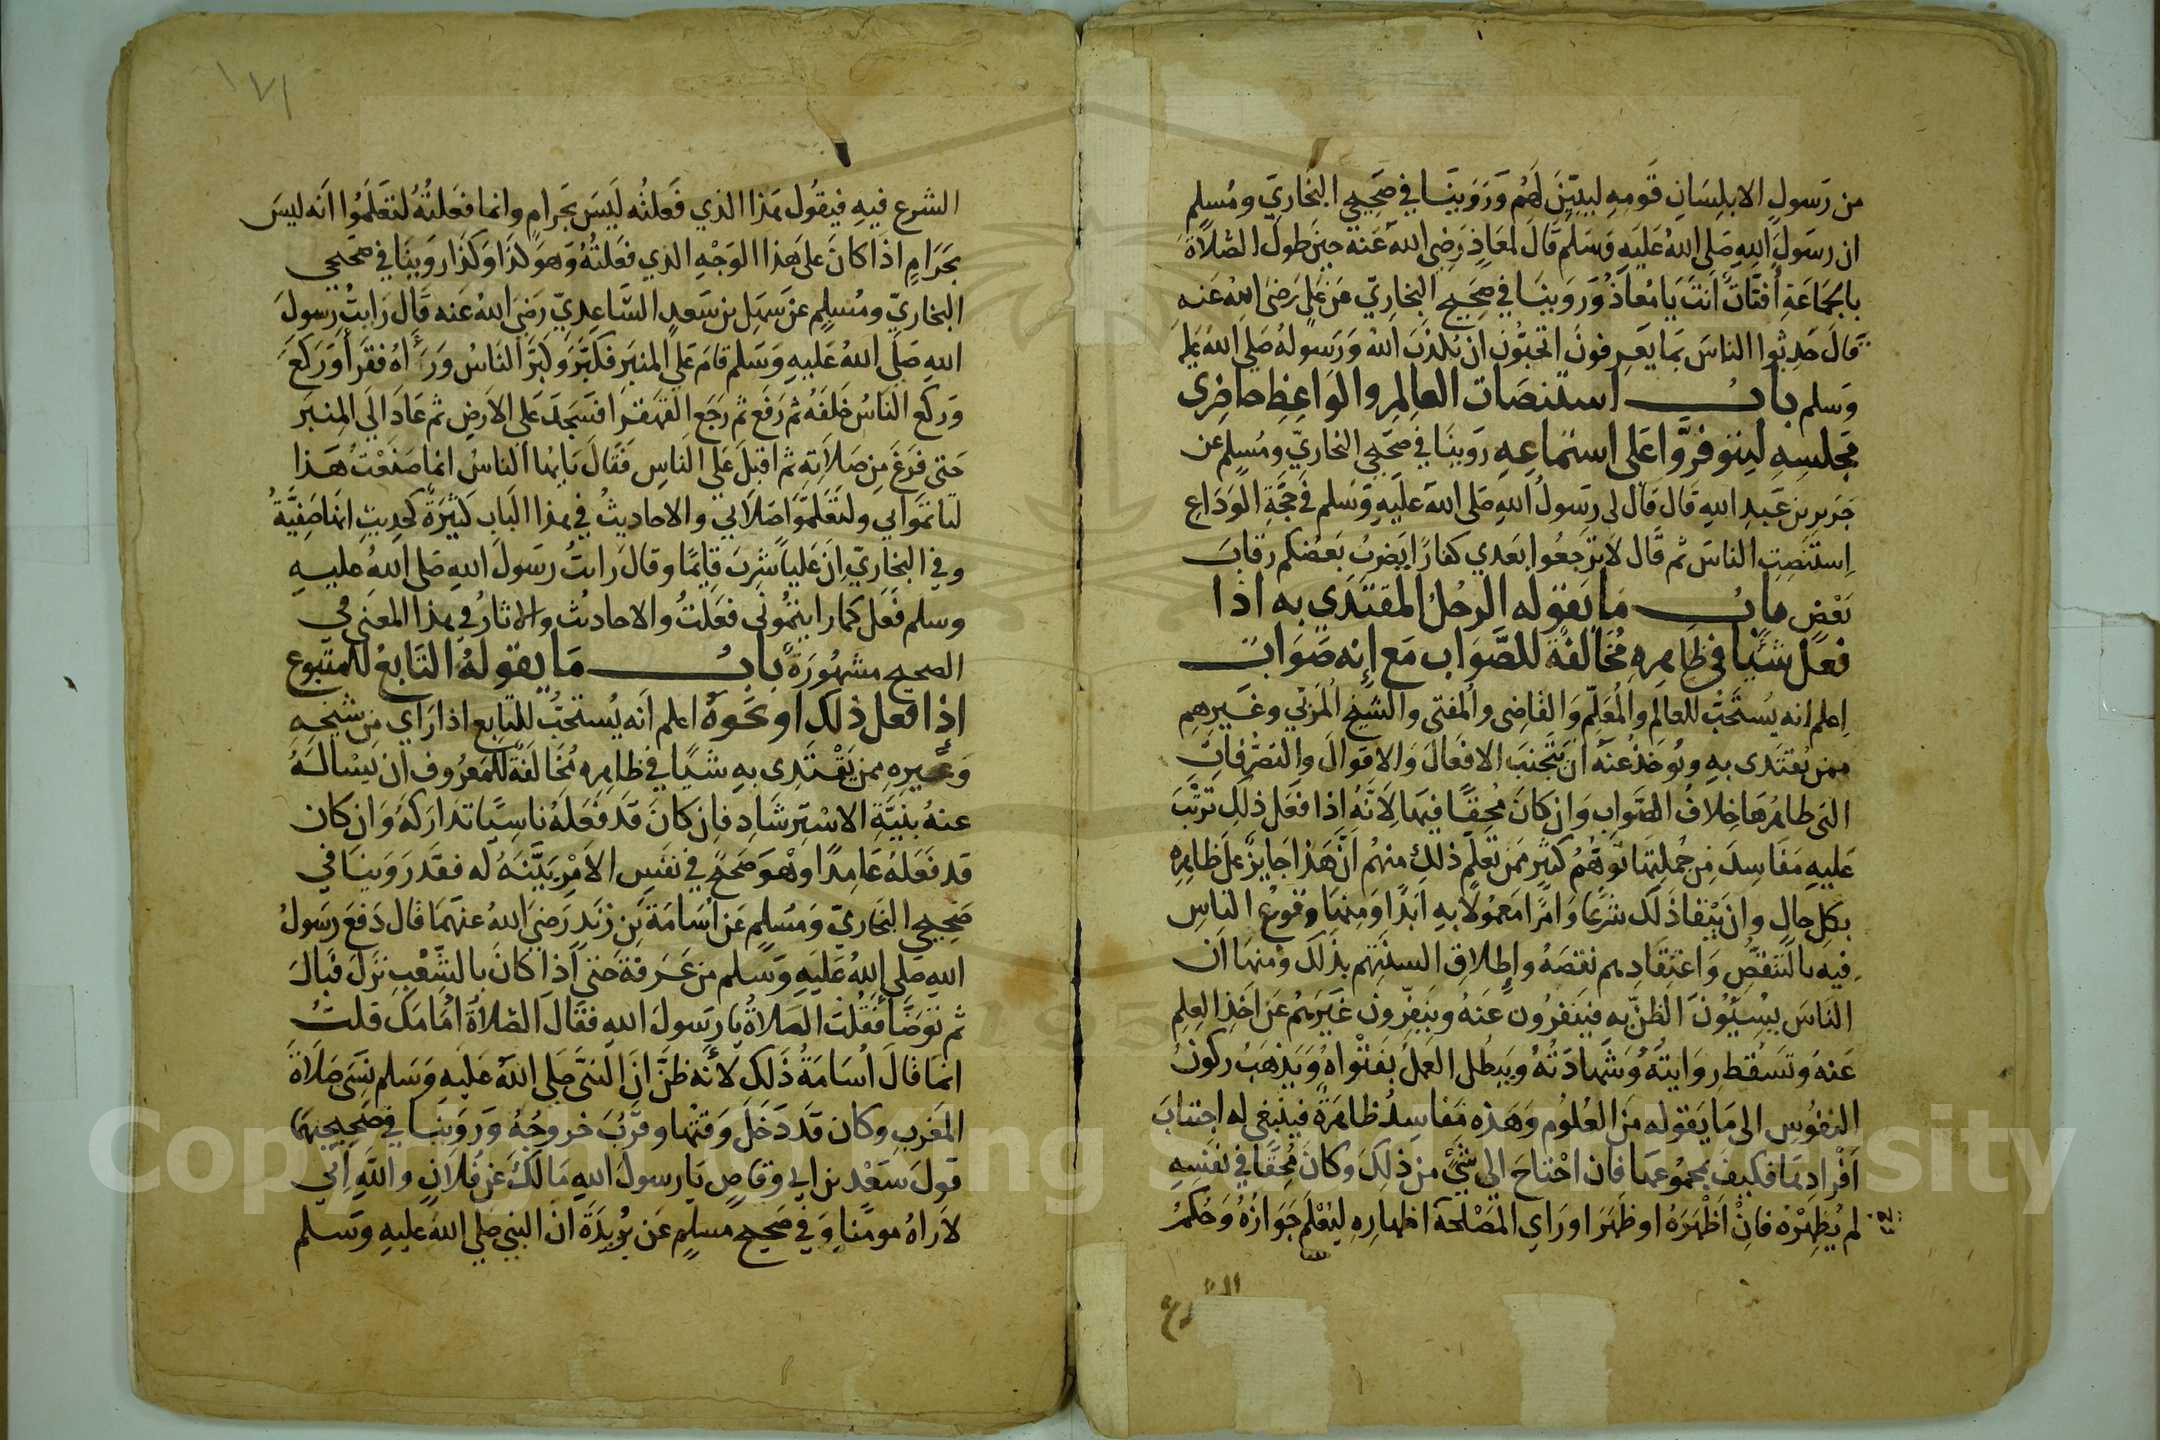 من رسول الا بلسان قومه ليبين لهم وروينا في صحيحي البخاري ومسلم
ان رسول الله صلى الله عليه وسلم قال لمعاذ رضي الله عنه حين طول الصلاة
بالجماعة أفتان انت يا معاذ وروينا في صحيح البخاري عن علي رضي الله عنه
قال حدثوا الناس بما يعرفون اتحبون ان يكذب الله ورسوله صلى الله عليه
وسلم باب استنصات العالم والواعظ حاضري
مجلسه ليتوفروا على استماعه روينا في صحيحي البخاري ومسلم عن
جرير بن عبد الله قال قال لي رسول الله صلى الله عليه وسلم في حجة الوداع
استنصت الناس ثم قال لا ترجعوا بعدي كفارا يضرب بعضكم رقاب
بعض باب ما يقوله الرجل المقتدي به اذا
فعل شيئا في ظاهره مخالفة للصواب مع إنه صواب
اعلم انه يستحب للعالم والمعلم والقاضي والمفتي والشيخ المربي وغيرهم
ممن يقتدى به ويؤخذ عنه ان يتجنب الافعال والاقوال والتصرفات
التي ظاهرها خلاف الصواب وان كان محقا فيها لانه اذا فعل ذلك ترتب
عليه مفاسد من جملتها توهم كثير ممن تعلم ذلك منهم ان هذا جايز على ظاهره
بكل حال وان يبقا ذلك شرعا وامرا معمولا به ابدا ومنها وقوع الناس
فيه بالتنقص واعتقادهم نقصه وإطلاق السنتهم بذلك ومنها ان
الناس يسيئون الظن به فينفرون عنه وينفرون غيرهم عن اخذ العلم
عنه وتسقط روايته وشهادته ويبطل العمل بفتواه ويذهب ركون
النفوس الى ما يقوله من العلوم وهذه مفاسد ظاهرة فينبغي له اجتناب
أفرادها فكيف بمجموعها فان احتاج الى شيء من ذلك وكان محقا في نفسه
لم يظهره فان أظهره او ظهر او راى المصلحة اظهاره ليعلم جوازه وحكم
١٧١
الشرع فيه فيقول هذا الذي فعلته ليس بحرام وانما فعلته لتعلموا انه ليس
بحرام اذا كان على هذا الوجه الذي فعلته وهو كذا وكذا روينا في صحيحي
البخاري ومسلم عن سهل بن سعد الساعدي رضي الله عنه قال رايت رسول
الله صلى الله عليه وسلم قام على المنبر فكبر وكبر الناس وراه فقرأ وركع
وركع الناس خلفه ثم رفع ثم رجع القهقرا فسجد على الارض ثم عاد الى المنبر
حتى فرغ من صلاته ثم اقبل على الناس فقال يا يها الناس انما صنعت هذا
لتاتموا بي ولتعلموا صلاتي والاحاديث في هذا الباب كثيرة كحديث انها صفية
وفي البخاري ان عليا شرب قايما وقال رايت رسول الله صلى الله عليه
وسلم فعل كما رايتموني فعلت والاحاديث والاثار في هذا المعنى في
الصحيح مشهورة باب ما يقوله التابع للمتبوع
إذا فعل ذلك او نحوه اعلم انه يستحب للتابع اذا راى من شيخه
وغيره ممن يقتدى به شيئا في ظاهره مخالفة للمعروف ان يساله
عنه بنية الاسترشاد فان كان قد فعله ناسيا تداركه وان كان
قد فعله عامدا وهو صحيح في نفس الامر بينه له فقد روينا في
صحيحي البخاري ومسلم عن اسامة بن زيد رضي الله عنهما قال دفع رسول
الله صلى الله عليه وسلم من عرفة حتى اذا كان بالشعب نزل فبال
ثم توضأ فقلت الصلاة يا رسول الله فقال الصلاة امامك قلت
انما قال اسامة ذلك لأنه ظن ان النبي صلى الله عليه وسلم نسي صلاة
المغرب وكان قد دخل وقتها وقرب خروجه وروينا في صحيحيهما
قول سعد بن ابي وقاص يا رسول الله مالك عن فلان والله اني
لاراه مومنا وفي صحيح مسلم عن بريدة ان النبي صلى الله عليه وسلم
Copyright © King Saud University